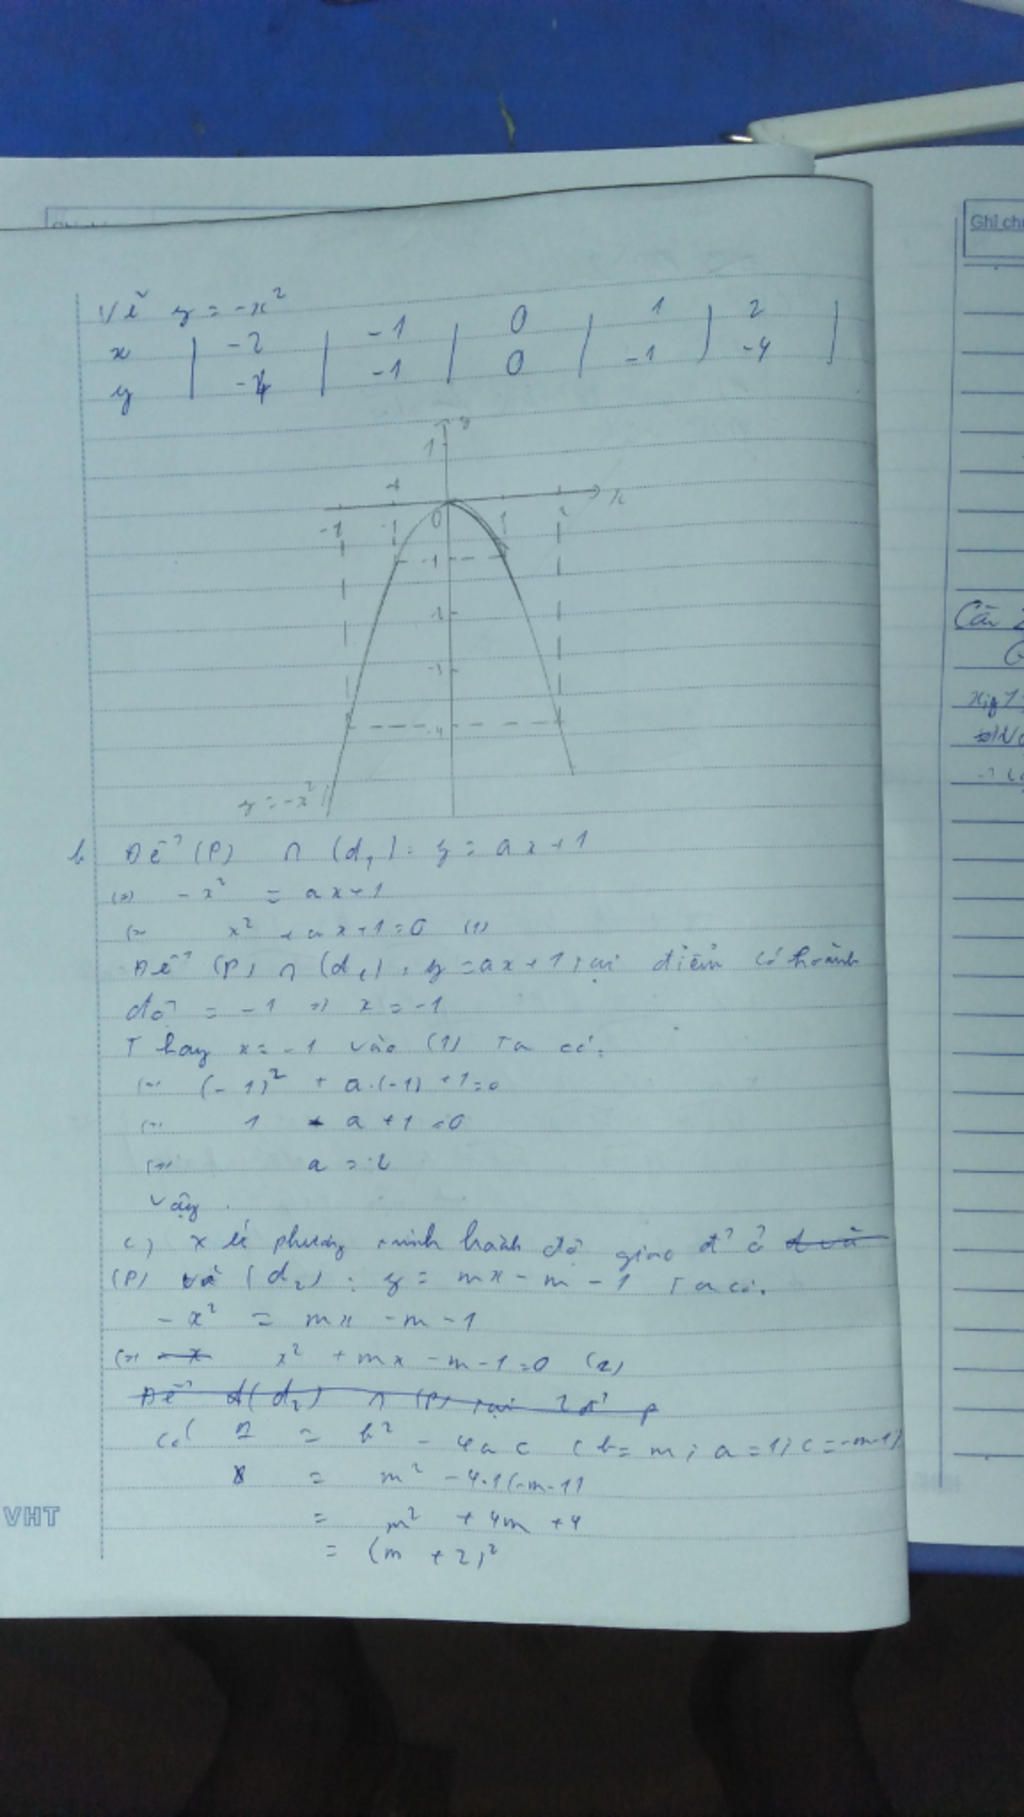 Vẽ y = -x²
x | -2 | -1 | 0 | 1 | 2 |
y | -4 | -1 | 0 | -1 | -4 |
y
1
x
-1 -1 0 1 2
-1
-2
-3
-4
y = -x²
b Để (P) ∩ (d₁): y = ax + 1
(=) -x² = ax + 1
(=) x² + ax + 1 = 0 (1)
Để (P) ∩ (d₁): y = ax + 1 tại điểm có hoành
độ = -1 => x = -1
Thay x = -1 vào (1) Ta có:
(=) (-1)² + a.(-1) + 1 = 0
(=) 1 - a + 1 = 0
(=) a = 2
Vậy
c) Xét phương trình hoành độ giao đ' ở
(P) và (d₂): y = mx - m - 1 Ta có:
-x² = mx - m - 1
(=) x² + mx - m - 1 = 0 (2)
Để (d₂) ∩ (P) tại 2 đ' p
Có = b² - 4ac (b = m; a = 1; c = -m-1)
= m² - 4.1(-m-1)
= m² + 4m + 4
= (m + 2)²
VHT
Ghi chú
Câu 2